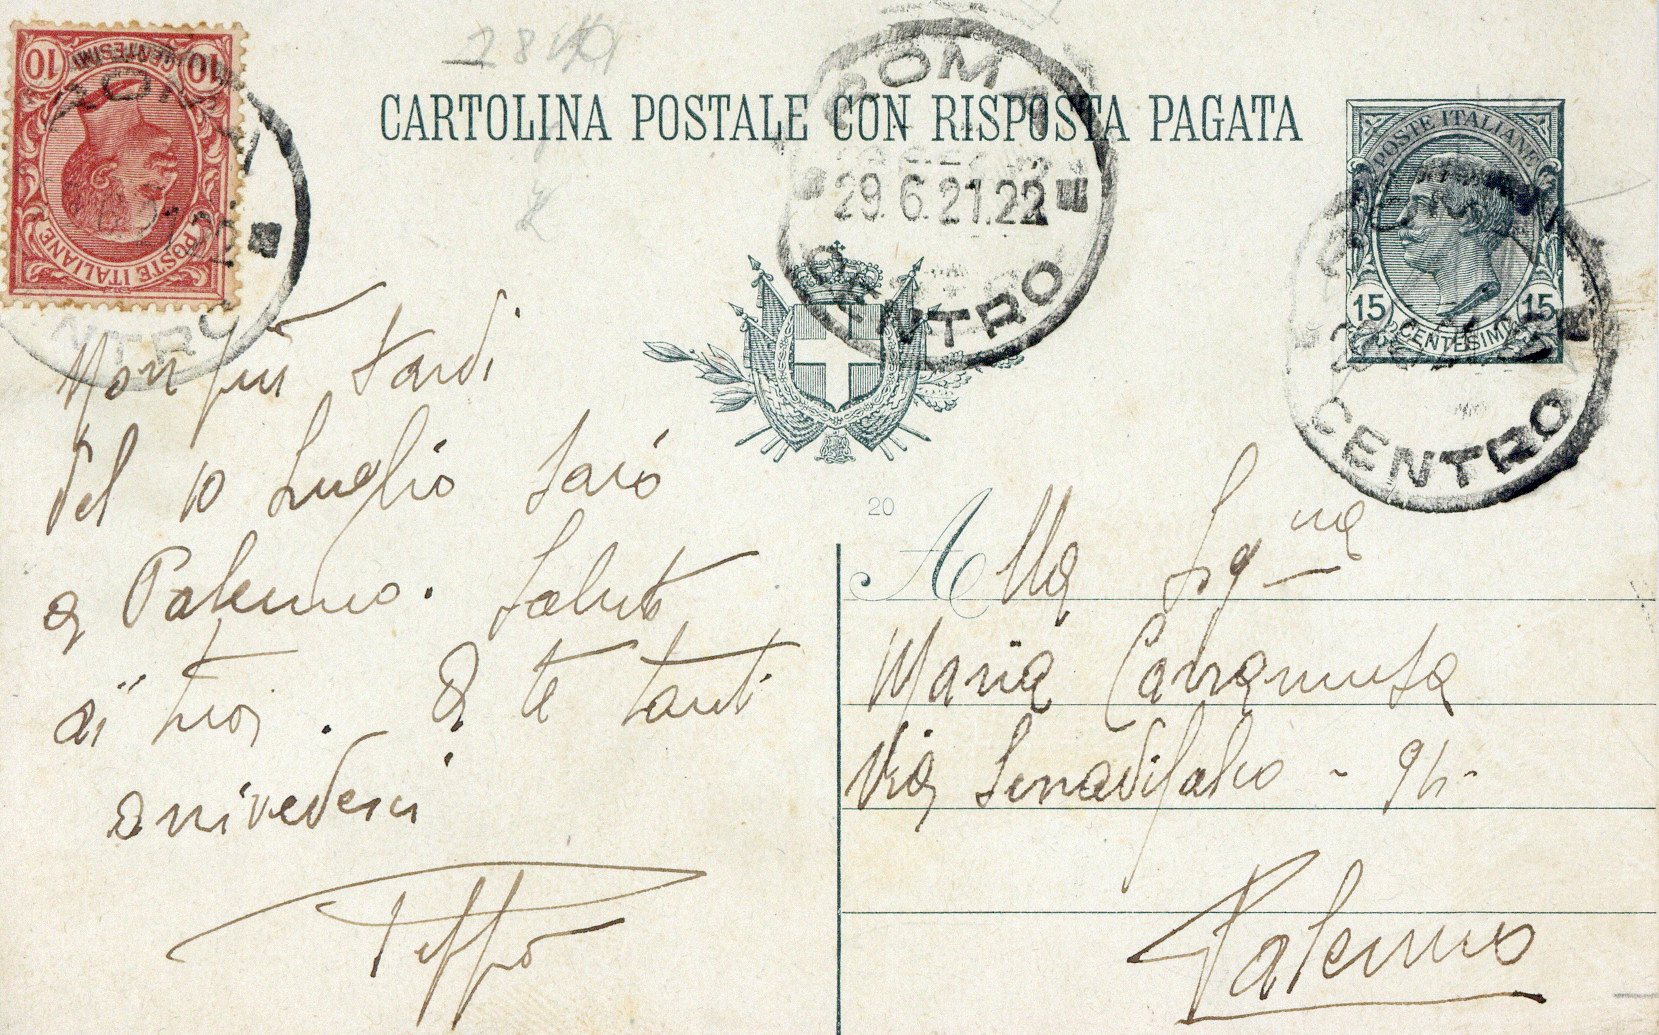 10 10
CENTESIMI
POSTE ITALIANE
CARTOLINA POSTALE CON RISPOSTA PAGATA
ROMA
29.6.21.22
CENTRO
POSTE ITALIANE
15 15
CENTESIMI
CENTRO
Non più tardi
del 10 Luglio sarò
a Palermo. Saluti
ai tuoi. A te tanti
arrivederci
Peppo
20
Alla Signa
Maria Carramusa
Via Serradifalco -
Palermo